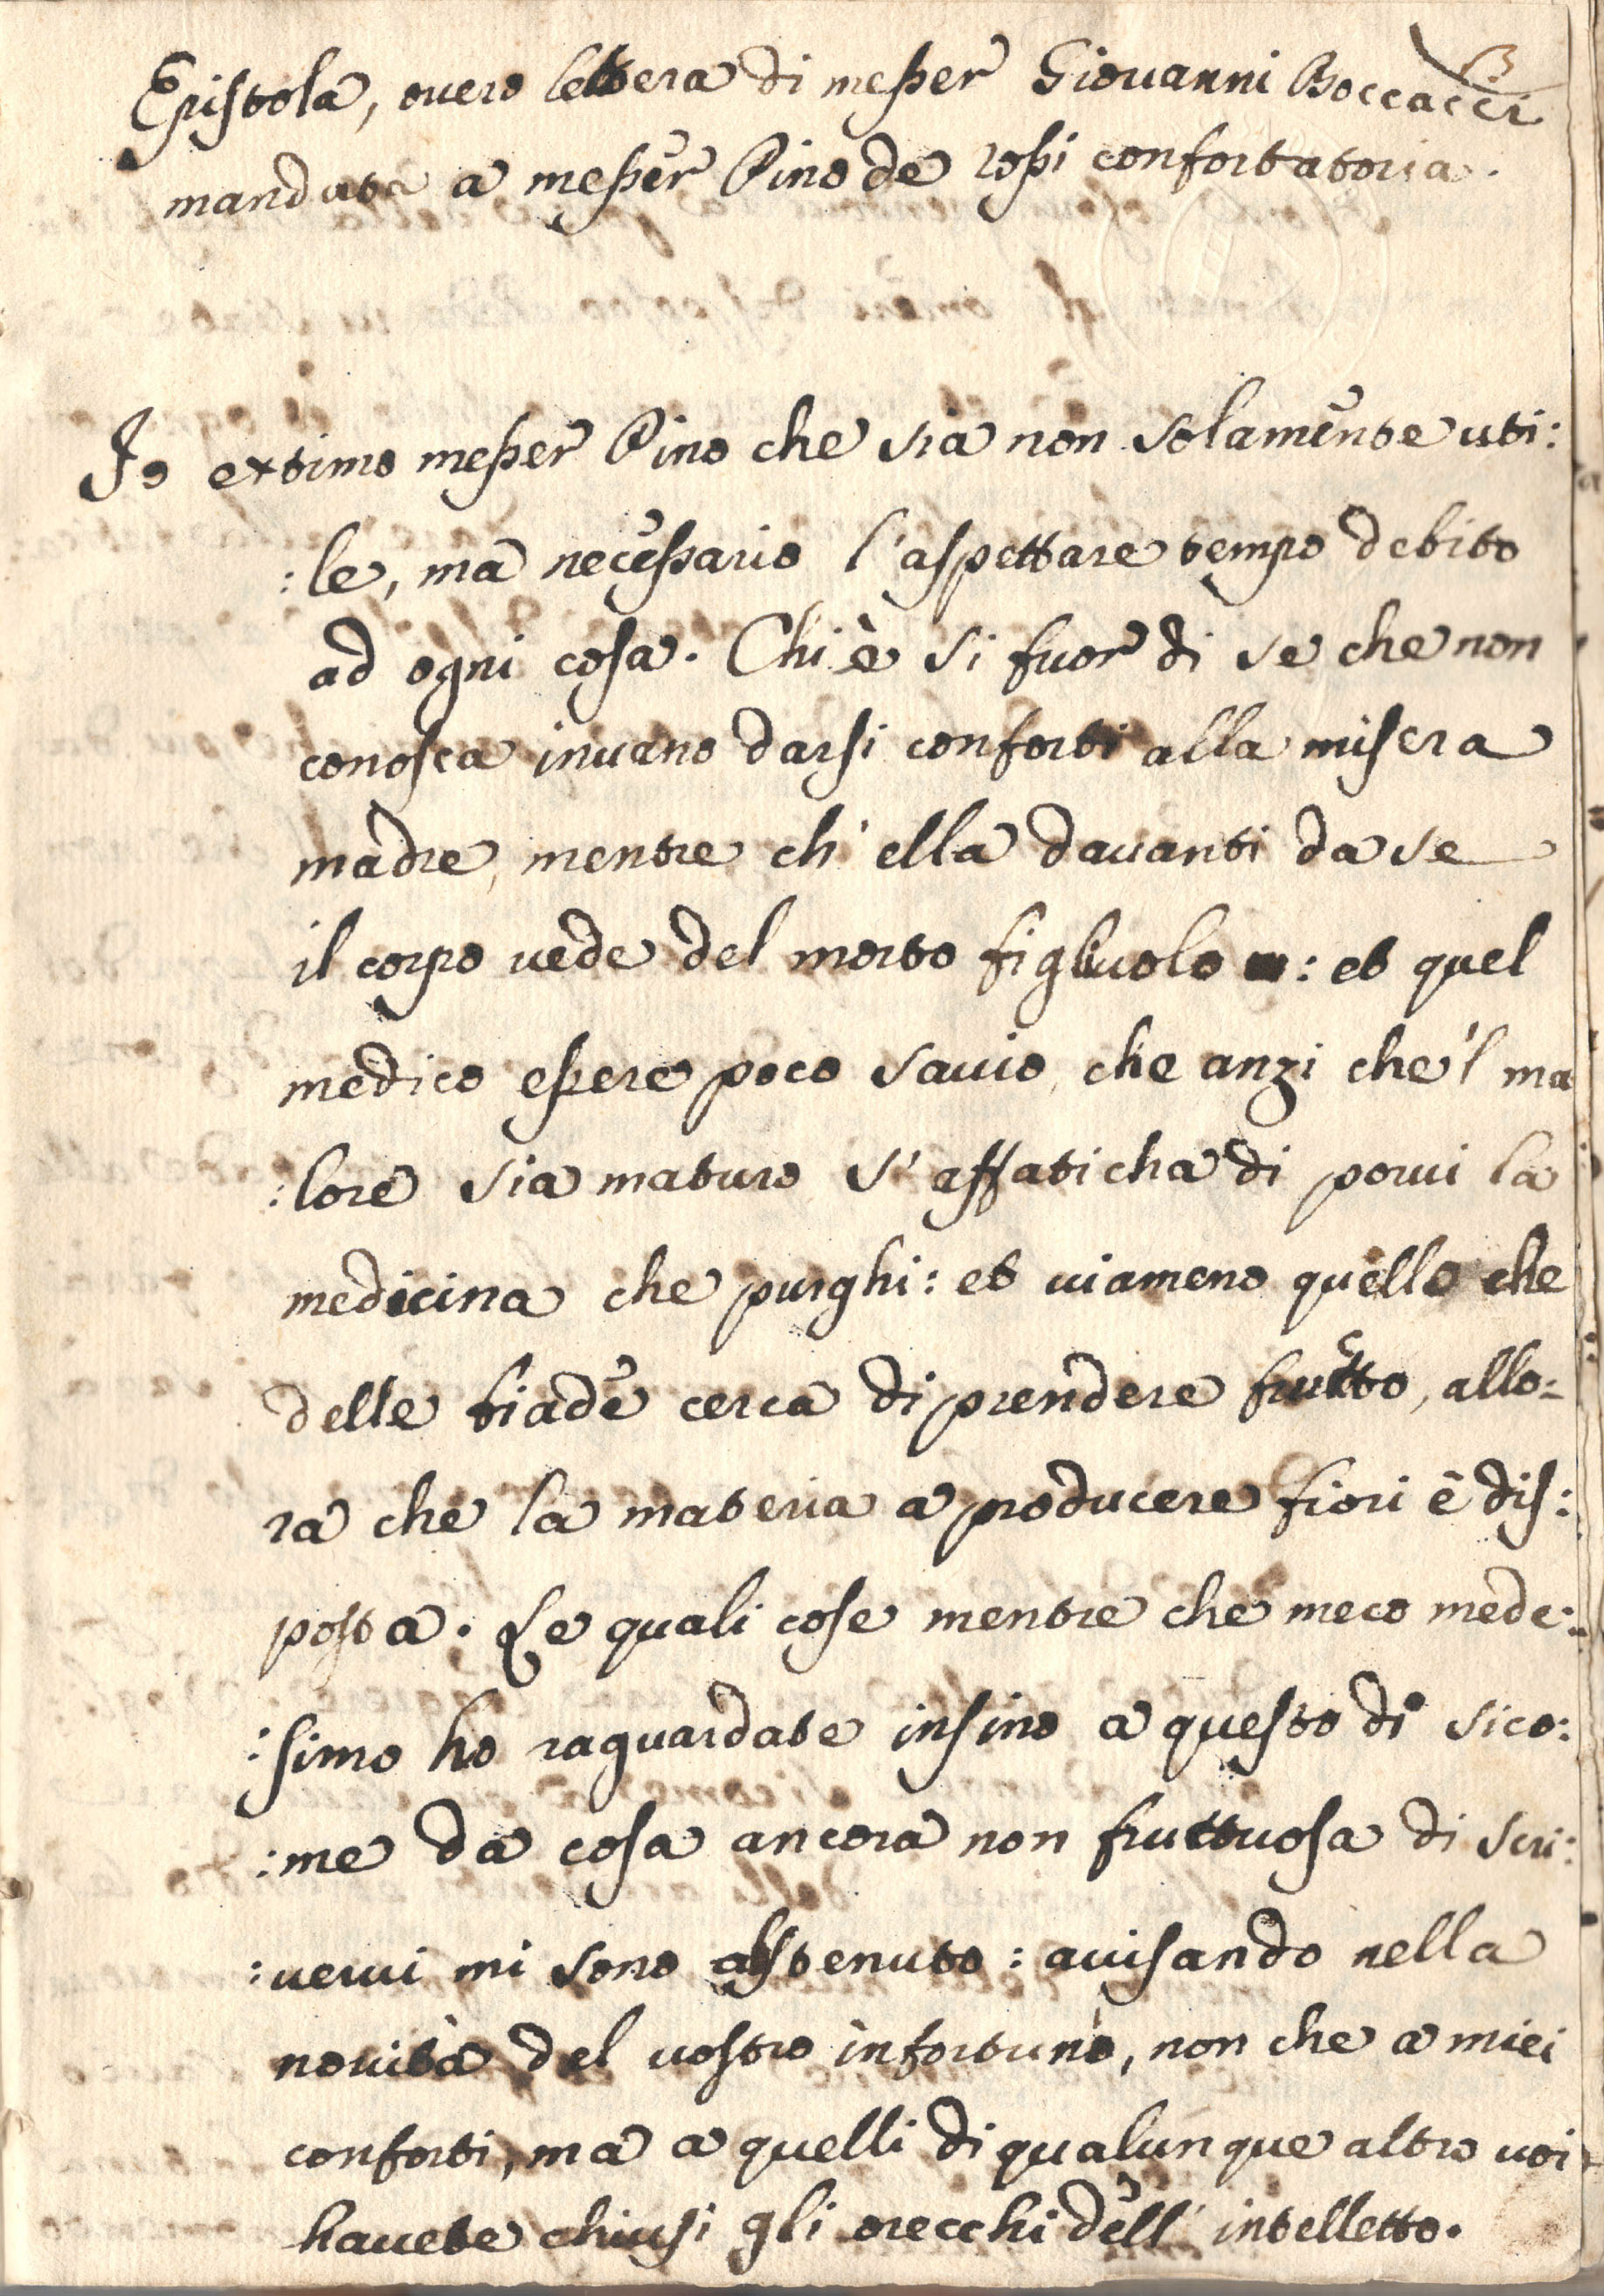 Epistola, overo lettera di messer Giovanni Boccacci
mandata a messer Pino de rossi confortatoria.
Io extimo messer Pino che sia non solamente uti:
:le, ma necessario l'aspettare tempo debito
ad ogni cosa. Chi è si fuor di se che non
conosca invano darsi conforti alla misera
madre, mentre ch'ella davanti da se
il corpo vede del morto figliuolo : et quel
medico essere poco savio, che anzi che'l ma
:lore sia maturo s'affaticha di porvi la
medicina che purghi: et viameno quello che
delle biade cerca di prendere frutto, allo:
ra che la materia a producere fiori è dis:
posta. Le quali cose mentre che meco mede:
:simo ho raguardate insino a questo di sico:
:me da cosa ancora non fruttuosa di scri:
:vervi mi sono abstenuto: avisando nella
novità del vostro infortunio, non che a miei
conforti, ma a quelli di qualunque altro voi
havete chiusi gli orecchi dell'intelletto.